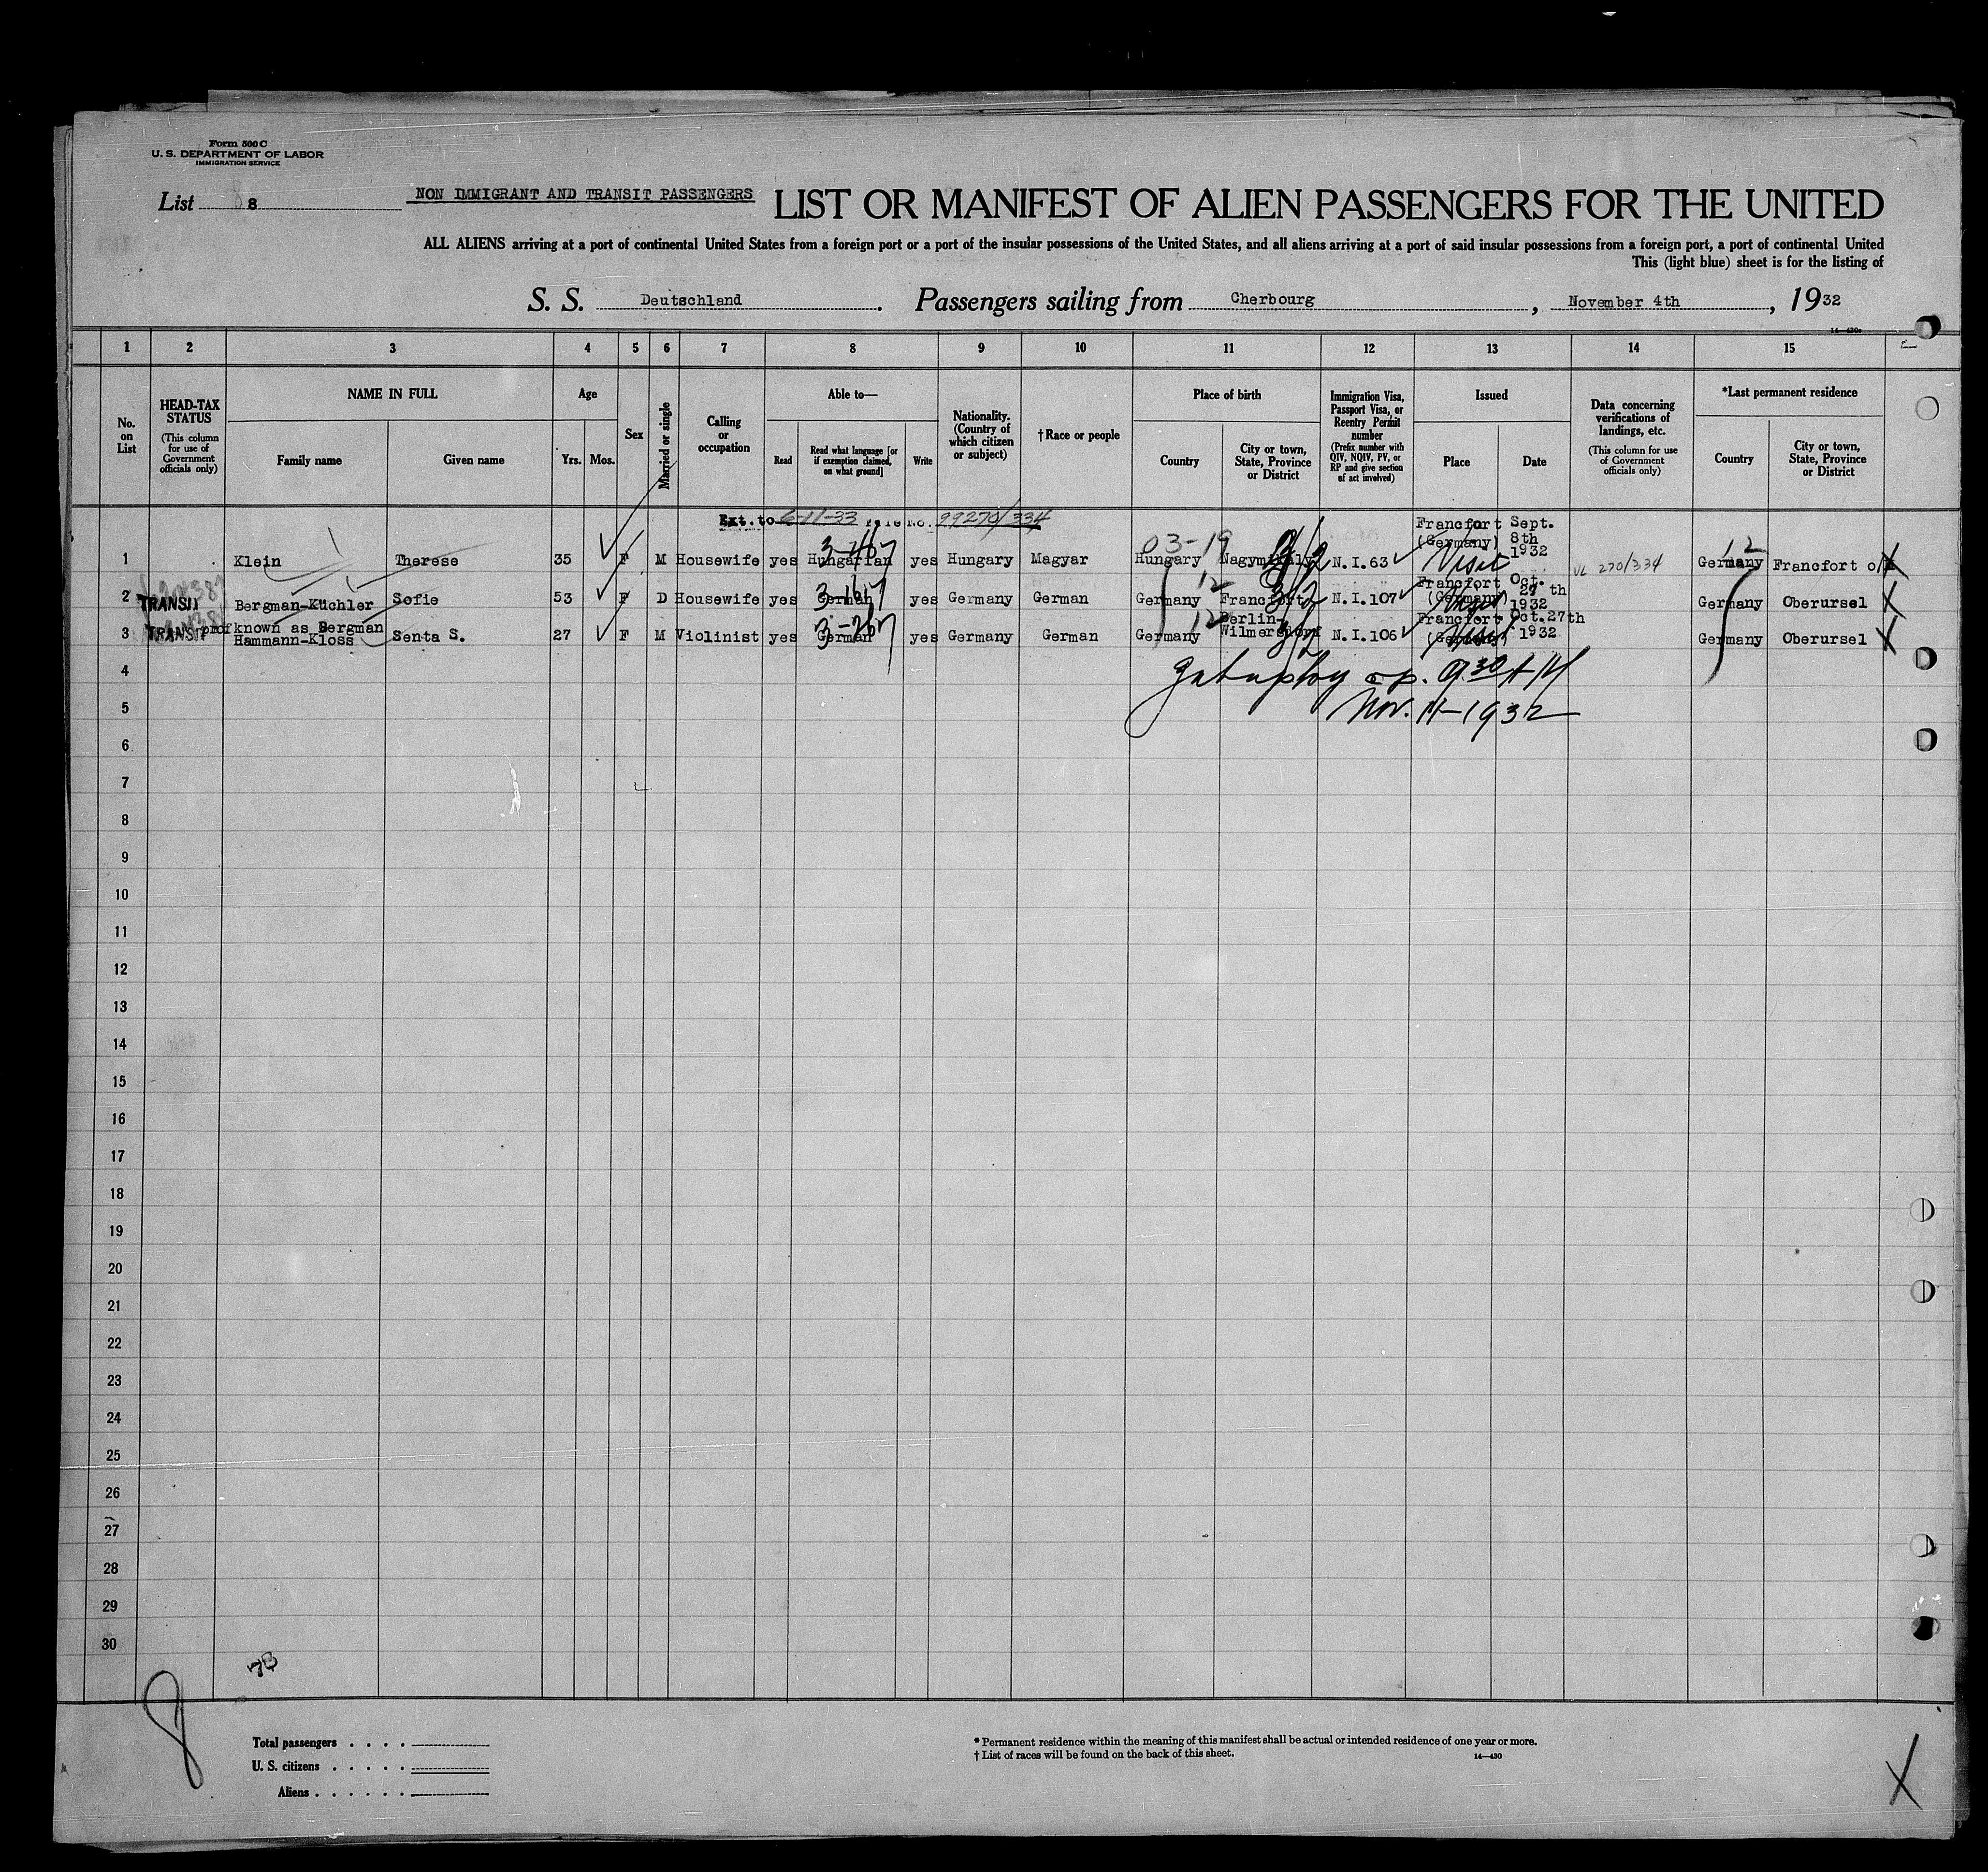 Form 500 C
U. S. DEPARTMENT OF LABOR
IMMIGRATION SERVICE
List 8 NON IMMIGRANT AND TRANSIT PASSENGERS LIST OR MANIFEST OF ALIEN PASSENGERS FOR THE UNITED
ALL ALIENS arriving at a port of continental United States from a foreign port or a port of the insular possessions of the United States, and all aliens arriving at a port of said insular possessions from a foreign port, a port of continental United
This (light blue) sheet is for the listing of
S. S. Deutschland. Passengers sailing from Cherbourg, November 4th, 1932
14—430a
1 2 3 4 5 6 7 8 9 10 11 12 13 14 15
No. on List
HEAD-TAX STATUS
(This column for use of Government officials only)
NAME IN FULL
Family name Given name
Age
Yrs. Mos.
Sex
Married or single
Calling or occupation
Able to—
Read
Read what language [or if exemption claimed, on what ground]
Write
Nationality. (Country of which citizen or subject)
†Race or people
Place of birth
Country
City or town, State, Province or District
Immigration Visa, Passport Visa, or Reentry Permit number
(Prefix number with QIV, NQIV, PV, or RP and give section of act involved)
Issued
Place Date
Data concerning verifications of landings, etc.
(This column for use of Government officials only)
*Last permanent residence
Country
City or town, State, Province or District
Ext. to 6-11-33 File No. 99270/334
1 Klein Therese 35 F M Housewife yes Hungarian yes Hungary Magyar Hungary N.I.63 Francfort (Germany) Sept. 8th 1932 Visit 270/334 Germany Francfort
03-19 12
2 TRANSIT Bergman-Küchler Sofie 53 F D Housewife yes German yes Germany German Germany Francfort N.I.107 Francfort (Germany) Oct. 27 th 1932 Germany Oberursel
3 TRANSIT prof known as Bergman
Hammann-Kloss Senta S. 27 F M Violinist yes German yes Germany German Germany Berlin-Wilmersdorf N.I.106 Francfort (Germany) Oct.27th 1932 Visit Germany Oberursel
4
5 Nov. 11-1932
6
7
8
9
10
11
12
13
14
15
16
17
18
19
20
21
22
23
24
25
26
27
28
29
30
8
Total passengers
U. S. citizens
Aliens
* Permanent residence within the meaning of this manifest shall be actual or intended residence of one year or more.
† List of races will be found on the back of this sheet. 14—430
X